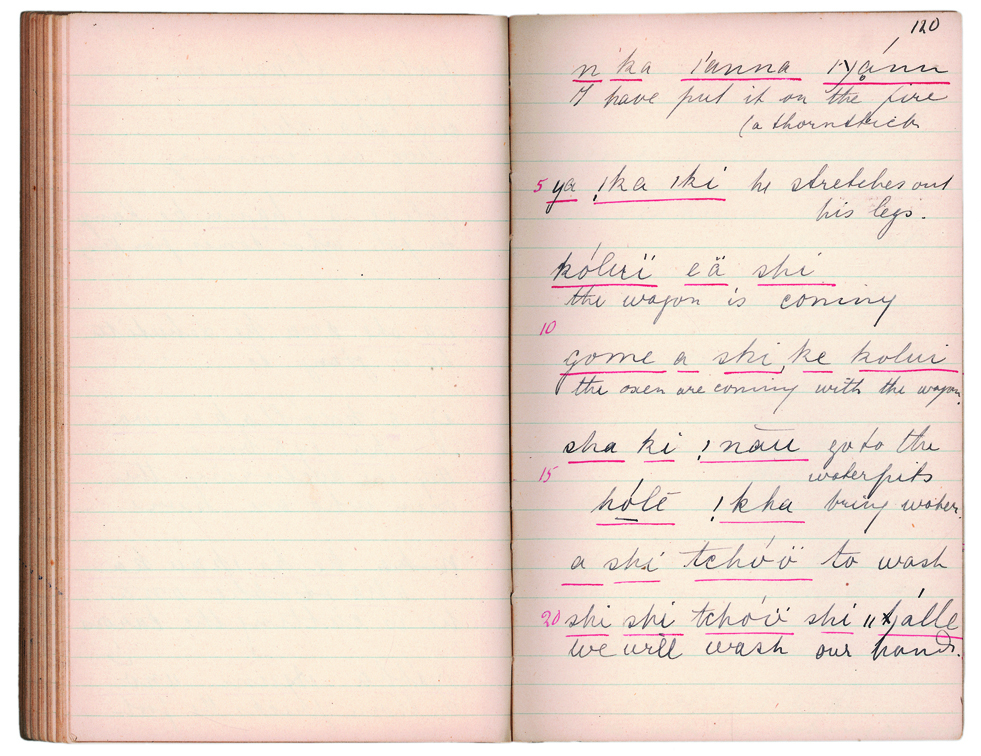 120
n ka ǀanna
I have put it on the fire
(a thornstick
5 ya ǃka ǀki he stretches out
his legs.
kóluïï eä shi
the wagon is coming
10
gome a shi ke kolui
the oxen are coming with the wagon.
sha ki ǃnāu go to the
15 waterpits
hólē ǃkha bring water.
a shi tchóü to wash
20 shi shi tchóü shi
we will wash our hands.